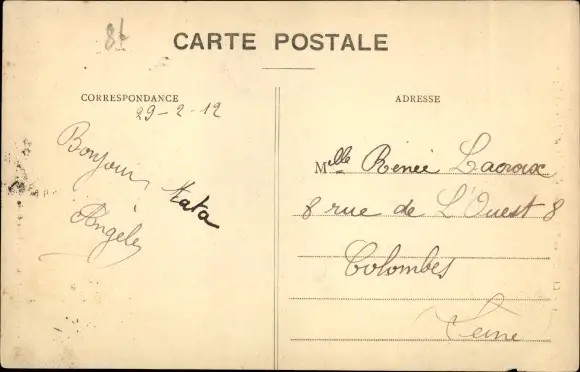 86
CARTE POSTALE
CORRESPONDANCE
29-2-12
Bonjour
tata
Angele
ADRESSE
Mlle Renée Lacroux
8 rue de L'Ouest 8
Colombes
Seine